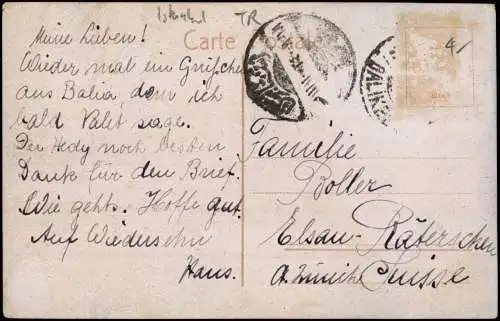 Istanbul TR
Carte Postale
4/
Meine Lieben!
Wieder mal ein Grüßchen
aus Balia, dem ich
bald Valet sage.
Der Hedy noch besten
Dank für den Brief.
Wie gehts. Hoffe gut.
Auf Wiedersehn
Hans.
Familie
Boller
Elsau-Räterschen
Suisse